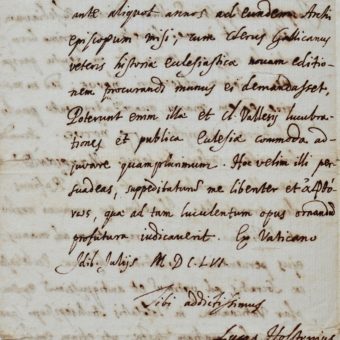 ante aliquot annos ad eundem Archi
Episcopum misi, cum Clerus Gallicanus
veteris historiæ Eclesiasticæ novam editio
nem procurandi munus ei demandasset,
Poterunt enim illa et Cl. Vallesij lucubra
tiones et publica Eclesiæ commoda ad
juvare quamplurimum. Hoc velim illi per
suadeas, suppeditaturum me libenter et
quæ ad tam luculentum opus ornandum
profutura iudicaverit. Ex Vaticano
Idib. Julijs M D C LVI
Tibi addictissimus
Lucas Holstenius